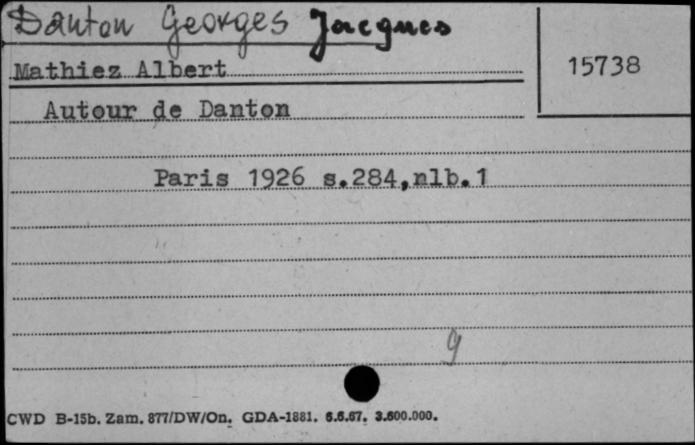 Danton Georges Jacques
Mathiez Albert
15738
Autour de Danton
Paris 1926 s.284,nlb.1
g
CWD B-15b. Zam. 877/DW/On. GDA-1881. 6.6.67. 3.600.000.